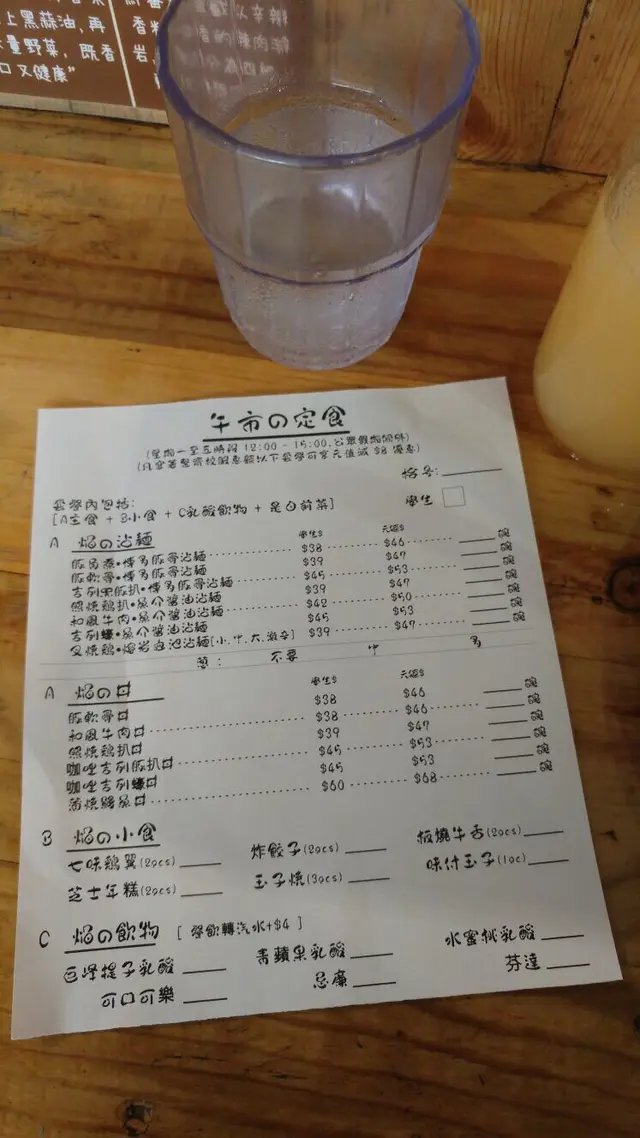 上黑蒜油,再
量野菜, 既香
口又健康"
午市の定食
(星期一至五時段 12:00 - 15:00, 公眾假期除外)
(凡穿著整齊校服惠顧以下套餐可享元值減 $8 優惠)
檯号:
學生
套餐內包括:
[A主食 + B小食 + C乳酸飲物 + 是日前菜]
A 焰の沾麺 學生$ 元值$
豚角煮•博多豚骨沾麺 $38 $46 碗
豚軟骨•博多豚骨沾麺 $39 $47 碗
吉列豚扒•博多豚骨沾麺 $45 $53 碗
照燒鶏扒•魚介醬油沾麺 $39 $47 碗
和風牛肉•魚介醬油沾麺 $42 $50 碗
吉列蠔•魚介醬油沾麺 $45 $53 碗
叉燒鶏•熔岩血池沾麺[小.中.大.激辛] $39 $47 碗
蔥: 不要 中 多
A 焰の丼 學生$ 元值$
豚軟骨丼 $38 $46 碗
和風牛肉丼 $38 $46 碗
照燒鶏扒丼 $39 $47 碗
咖哩吉列豚扒丼 $45 $53 碗
咖哩吉列蠔丼 $45 $53 碗
蒲燒鰻魚丼 $60 $68 碗
B 焰の小食
七味鶏翼(2pcs) 炸餃子(2pcs) 板燒牛舌(2pcs)
芝士年糕(2pcs) 玉子燒(3pcs) 味付玉子(1pc)
C 焰の飲物 [ 餐飲轉汽水+$4 ]
巨峰提子乳酸 青蘋果乳酸 水蜜桃乳酸
可口可樂 忌廉 芬達